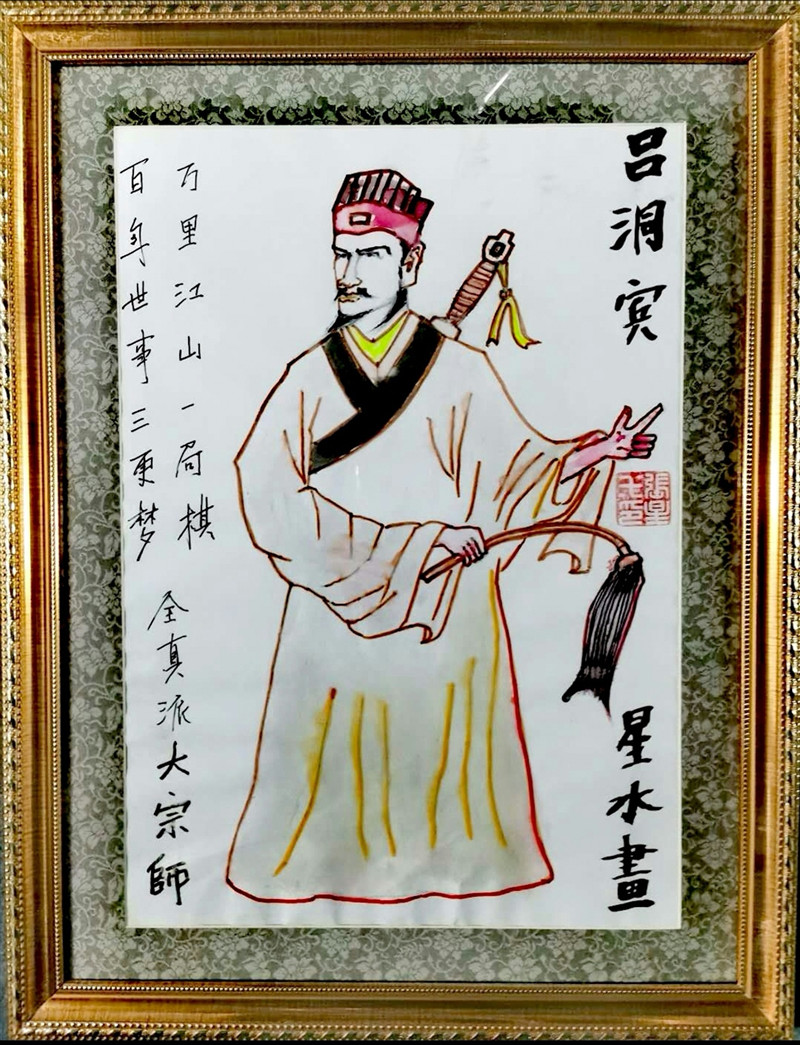 吕洞宾
星水畫
万里江山一局棋
百年世事三更梦
全真派大宗師